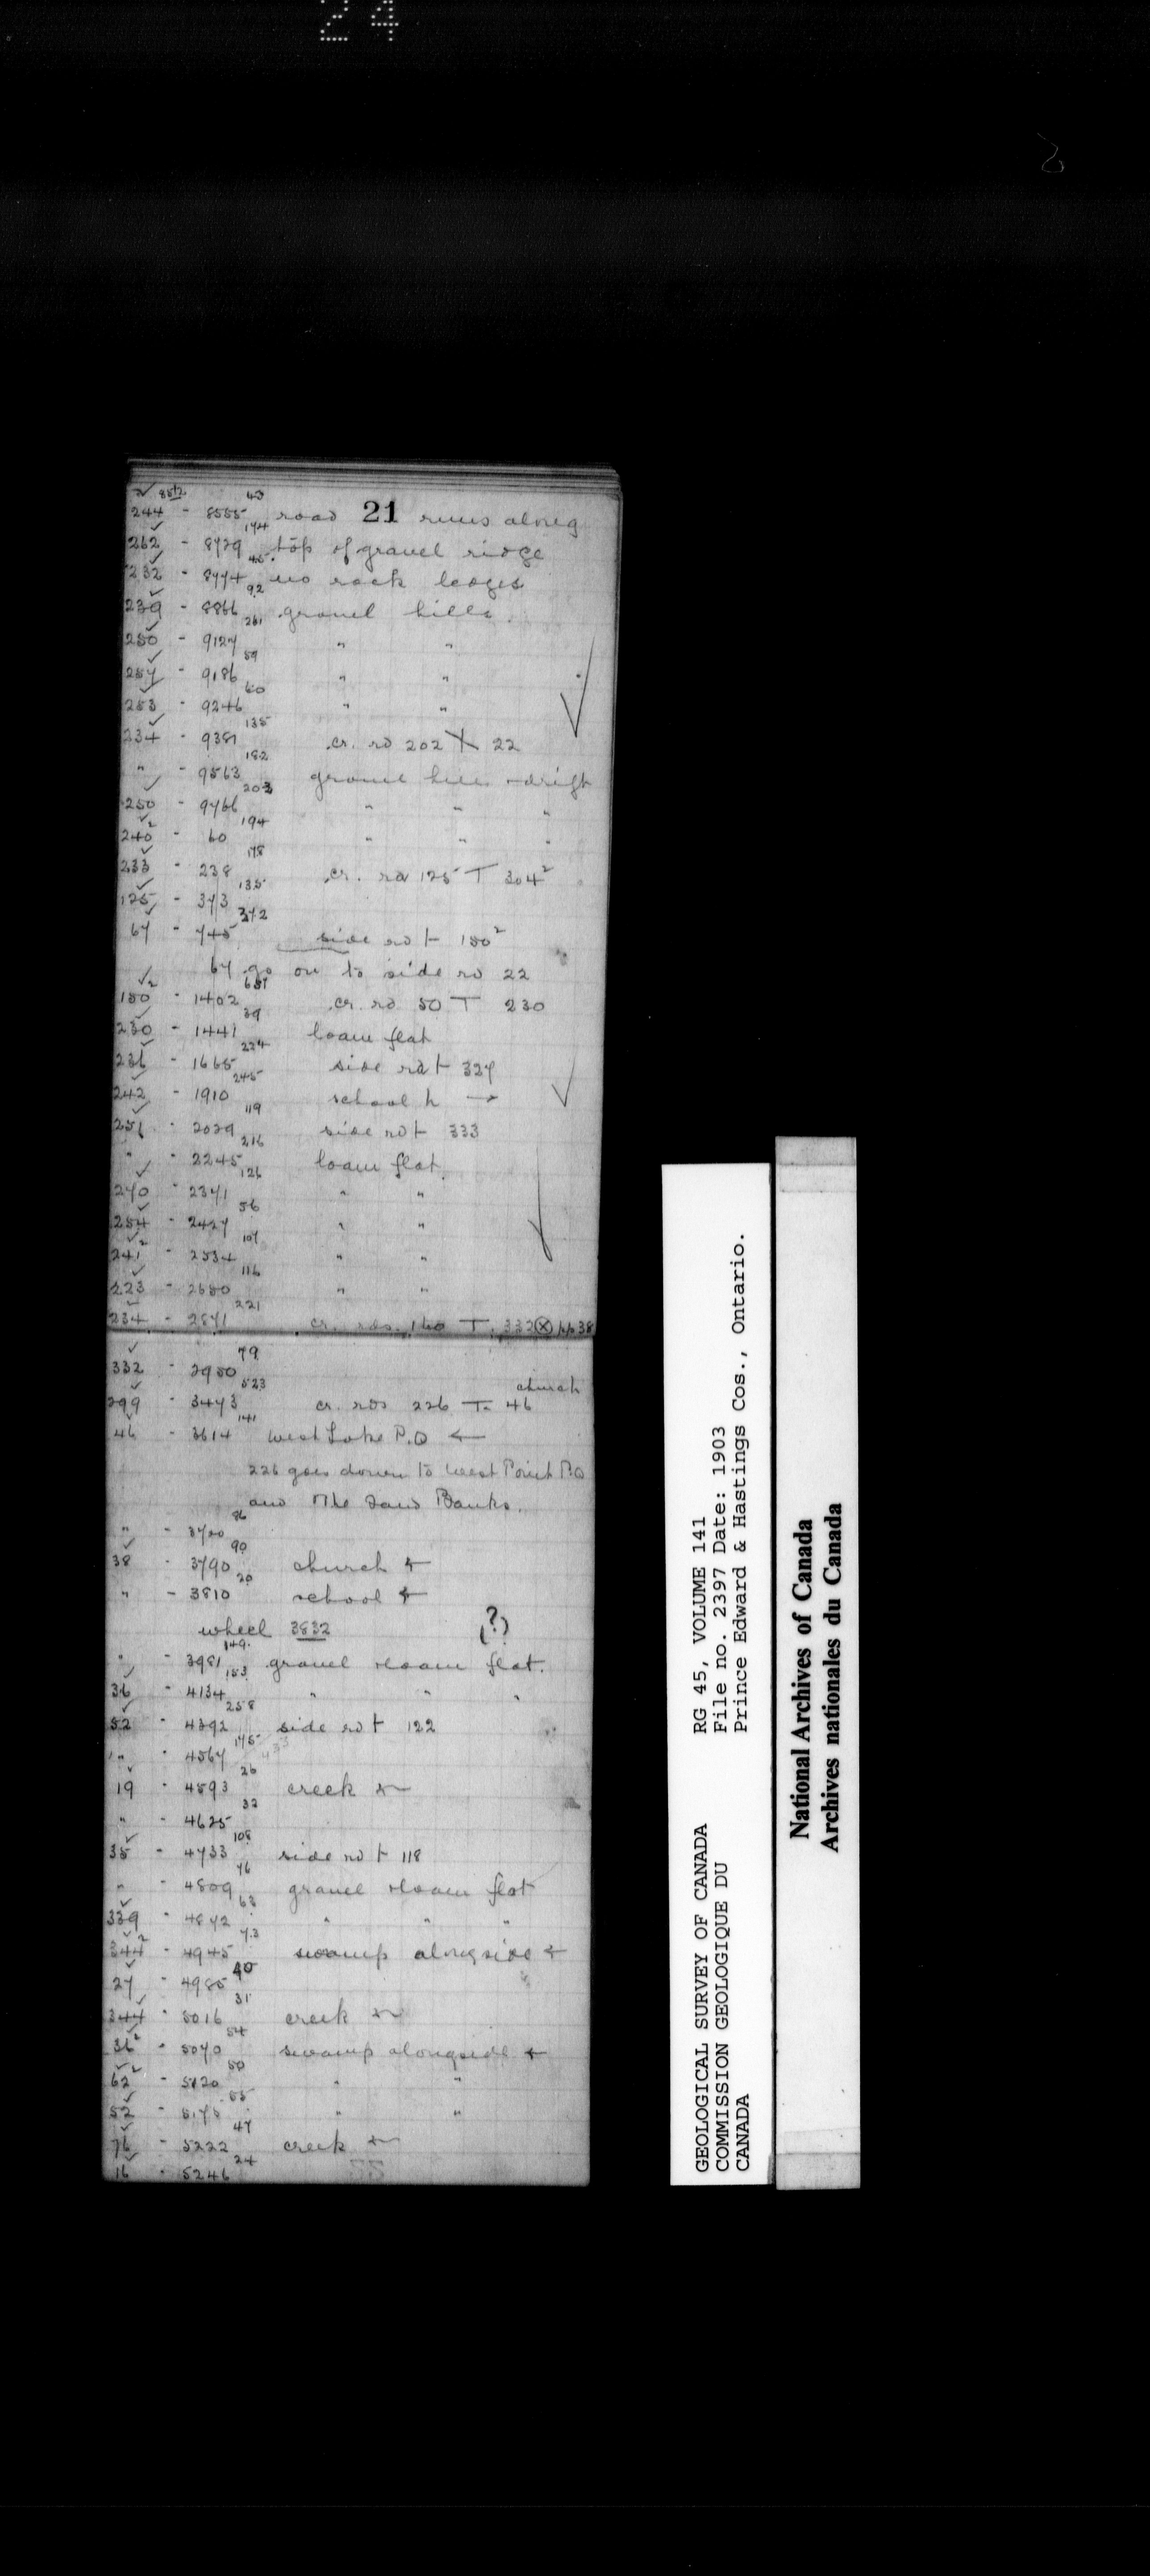 24
8512
43
244 - 8555 road 21 runs along
174
262 - 8729 top of gravel ridge
45
232 - 8774 no rock ledges
92
239 - 8866 gravel hills.
261
250 - 9127 " "
59
257 - 9186 " "
60
253 - 9246 " "
135
234 - 9381 cr. rd 202 X 22
182
" - 9563 gravel hills + drift
203
250 - 9766 " " "
194
240² - 60 " " "
178
233 - 238 cr. rd 125 T 304²
135
125 - 373
372
67 - 745 side rd ⊢ 150²
67 go on to side rd 22
657
150² - 1402 cr. rd 50 T 230
39
230 - 1441 loam flat
224
236 - 1665 side rd ⊢ 327
245
242 - 1910 school h →
119
251 - 2029 side rd ⊢ 333
216
" - 2245 loam flat.
126
270 - 2371 " "
56
254 - 2427 " "
107
241² - 2534 " "
116
223 - 2650 " "
221
234 - 2871 cr. rds. 160 T. 332 ⊗ pp 38
79
332 - 2950
523
church
299 - 3473 cr. rds 226 T. 46
141
46 - 3614 West Lake P.O ←
226 goes down to West Point P.O
and The Sand Banks.
86
" - 3700
90
38 - 3790 church ←
20
" - 3810 school ←
wheel 3832 (?)
149
" - 3981 gravel + loam flat.
153
36 - 4134 " " "
258
52 - 4392 side rd ⊢ 122
175
" - 4567
26
19 - 4593 creek ←
32
" - 4625
108
35 - 4733 side rd ⊢ 118
76
" - 4809 gravel + loam flat
63
339 - 4872 " " "
73
344² - 4945 swamp alongside ←
40
27 - 4985
31
344 - 5016 creek ←
54
36² - 5070 swamp alongside ←
50
62² - 5120 " "
55
52 - 5175 " "
47
76 - 5222 creek ←
24
16 - 5246
GEOLOGICAL SURVEY OF CANADA
COMMISSION GEOLOGIQUE DU
CANADA
RG 45, VOLUME 141
File no. 2397 Date: 1903
Prince Edward & Hastings Cos., Ontario.
National Archives of Canada
Archives nationales du Canada